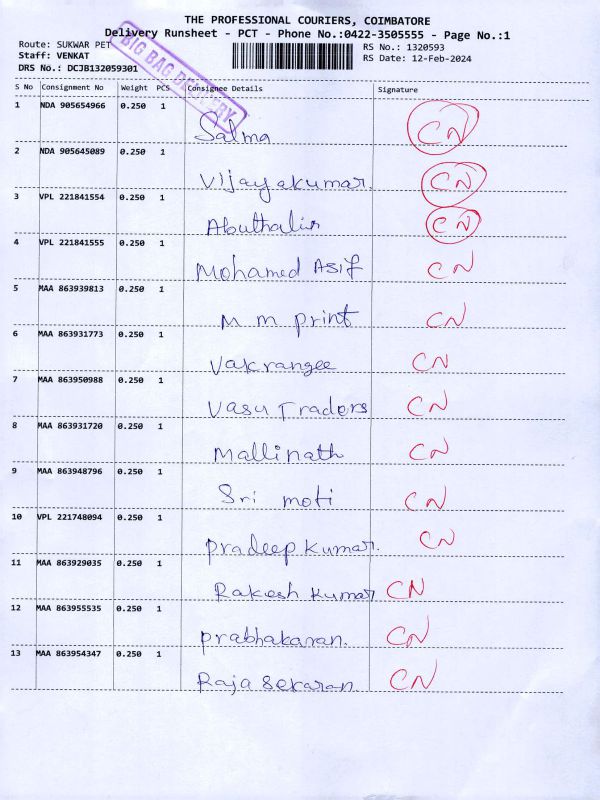 THE PROFESSIONAL COURIERS, COIMBATORE
Delivery Runsheet - PCT - Phone No.:0422-3505555 - Page No.:1
Route: SUKWAR PET
RS No.: 1320593
Staff: VENKAT
RS Date: 12-Feb-2024
DRS No.: DCJB132059301
BIG BAG DELIVERY
S No Consignment No Weight PCS Consignee Details Signature
1 NDA 905654966 0.250 1
Salma CN
2 NDA 905645089 0.250 1
Vijayakumar. CN
3 VPL 221841554 0.250 1
Abuthalir CN
4 VPL 221841555 0.250 1
Mohamed Asif CN
5 MAA 863939813 0.250 1
M m print CN
6 MAA 863931773 0.250 1
Vakrangee CN
7 MAA 863950988 0.250 1
Vasu Traders CN
8 MAA 863931720 0.250 1
Mallinath CN
9 MAA 863948796 0.250 1
Sri moti CN
10 VPL 221748094 0.250 1
pradeep kumar. CN
11 MAA 863929035 0.250 1
Rakesh kumar CN
12 MAA 863955535 0.250 1
prabhakaran. CN
13 MAA 863954347 0.250 1
Raja sekaran. CN